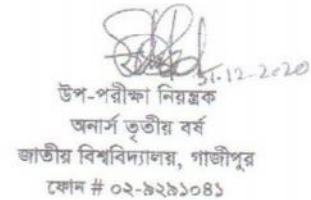 31.12.2020
উপ-পরীক্ষা নিয়ন্ত্রক
অনার্স তৃতীয় বর্ষ
জাতীয় বিশ্ববিদ্যালয়, গাজীপুর
ফোন # ০২-৯২৯১০৪১